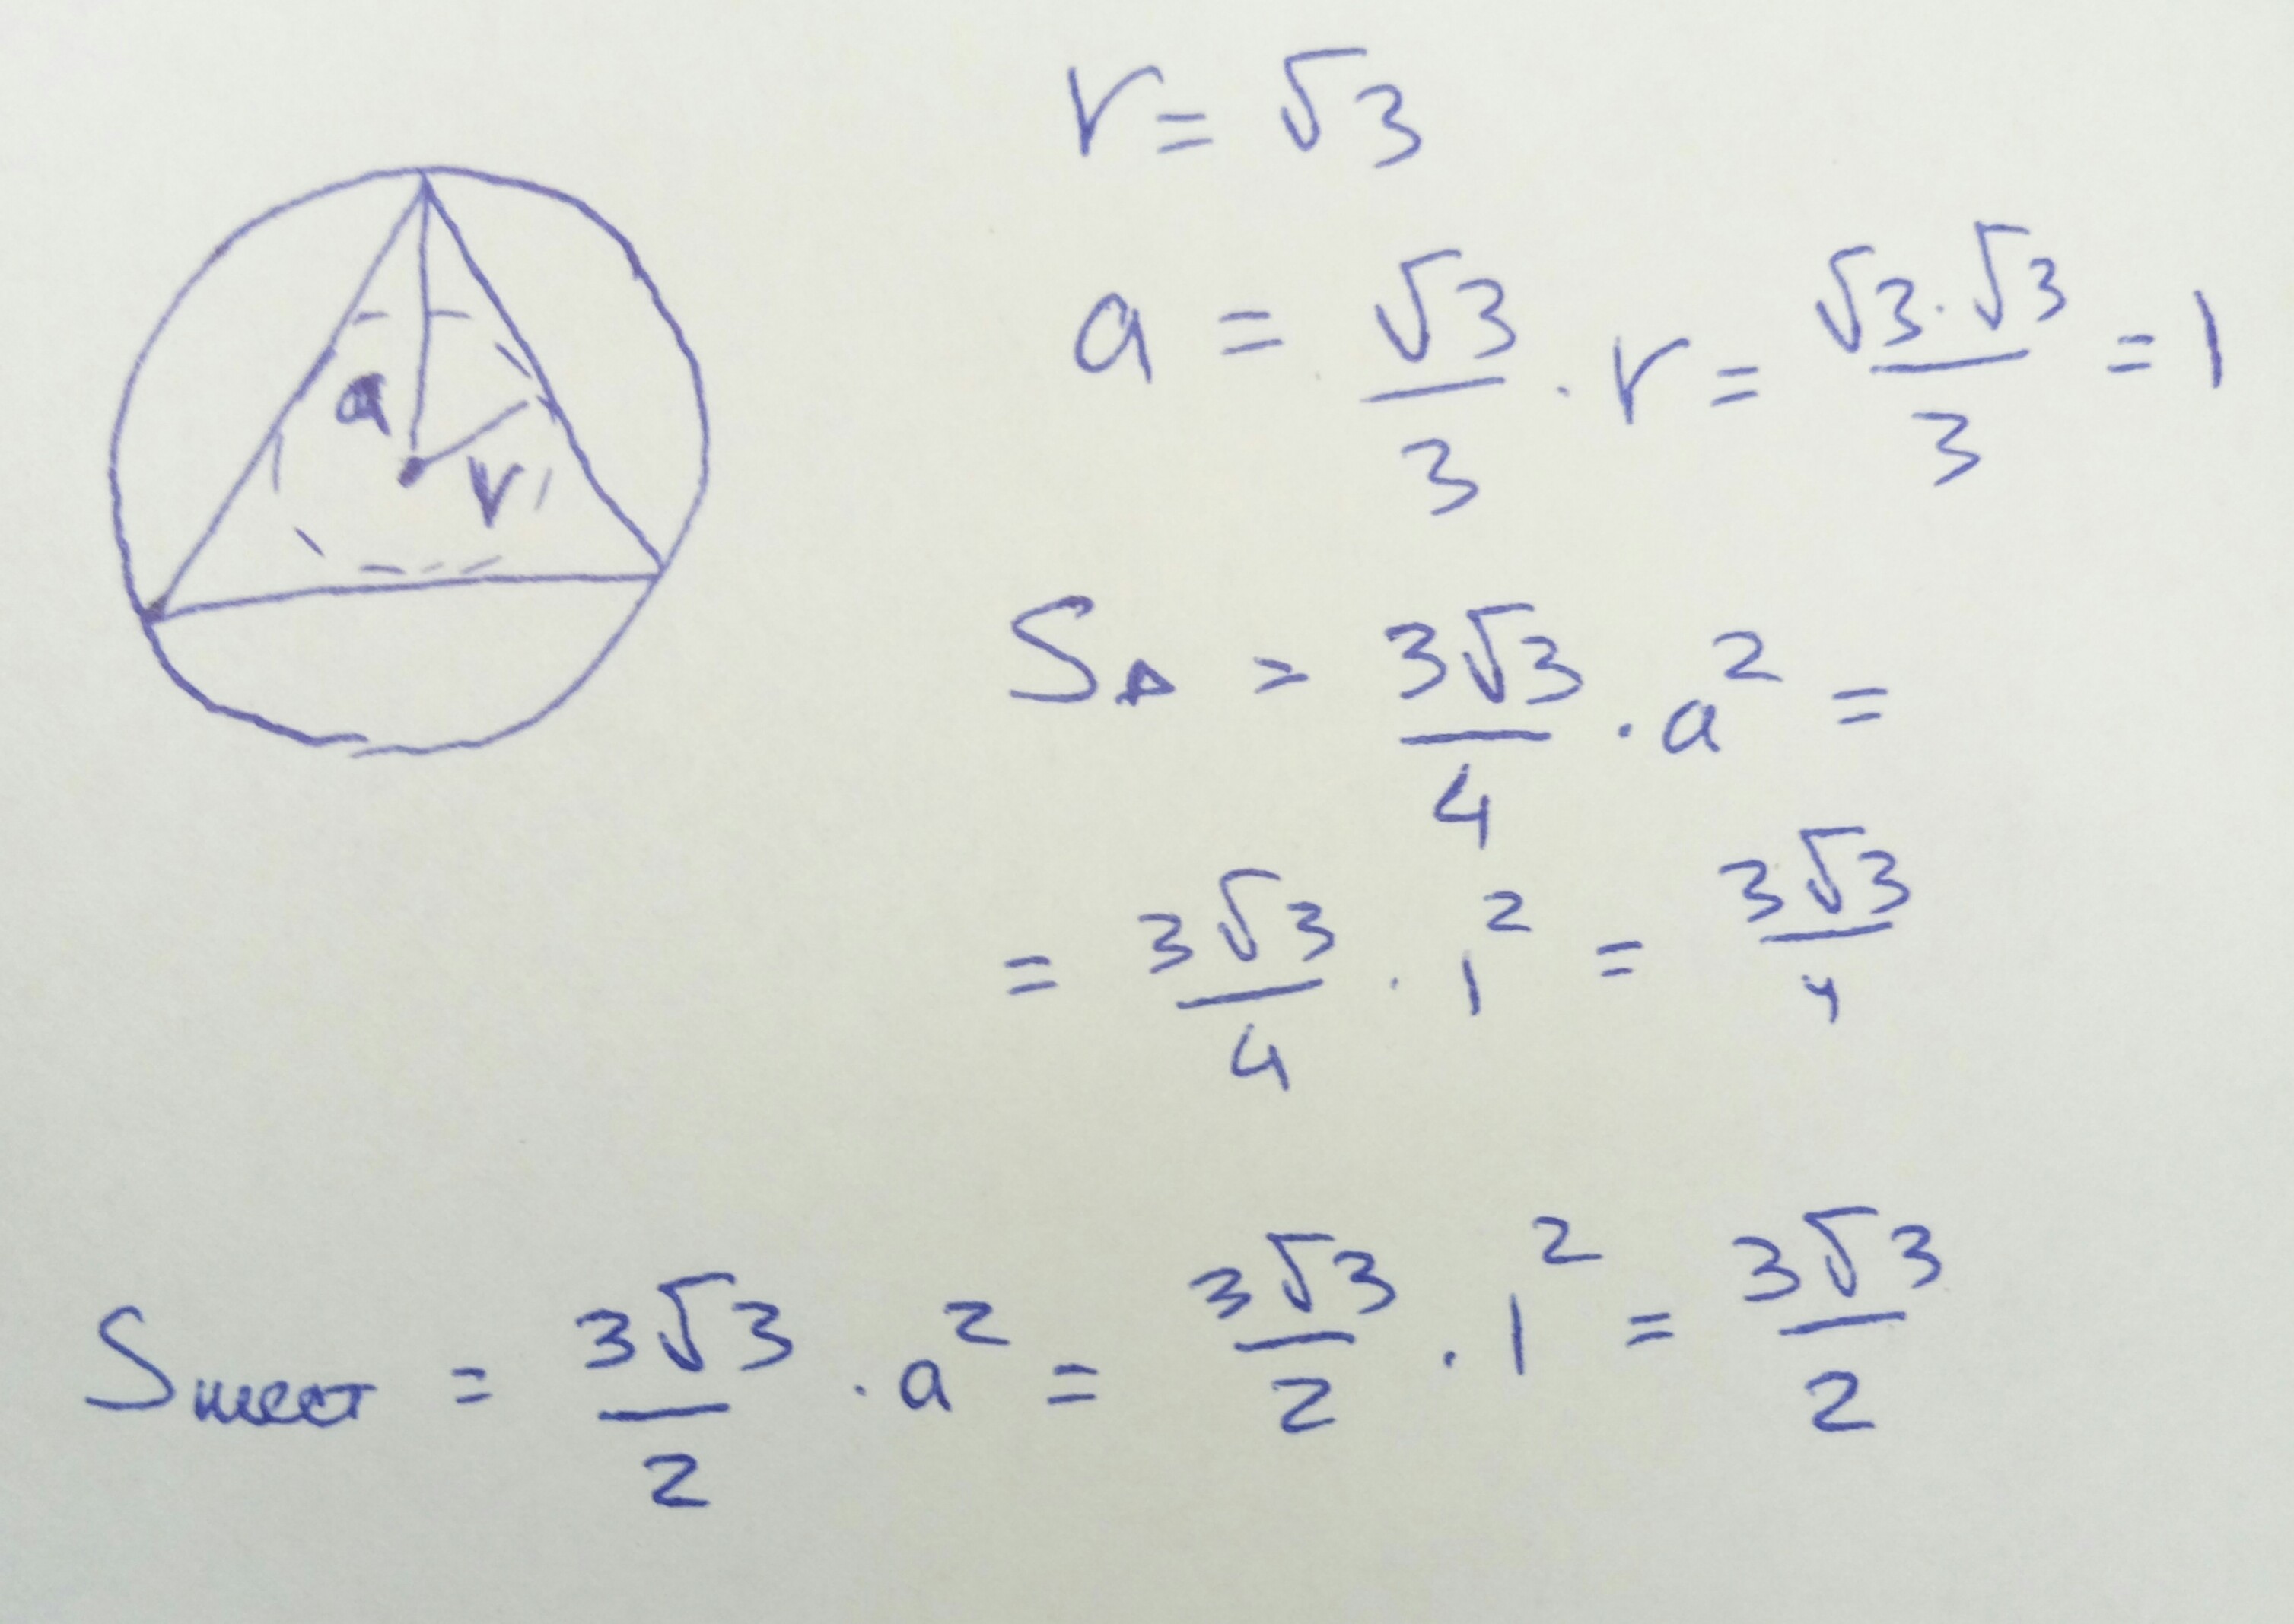 r = √3
a = √3/3 · r = √3·√3/3 = 1
a
r
S△ = 3√3/4 · a² =
= 3√3/4 · 1² = 3√3/4
Sшест = 3√3/2 · a² = 3√3/2 · 1² = 3√3/2